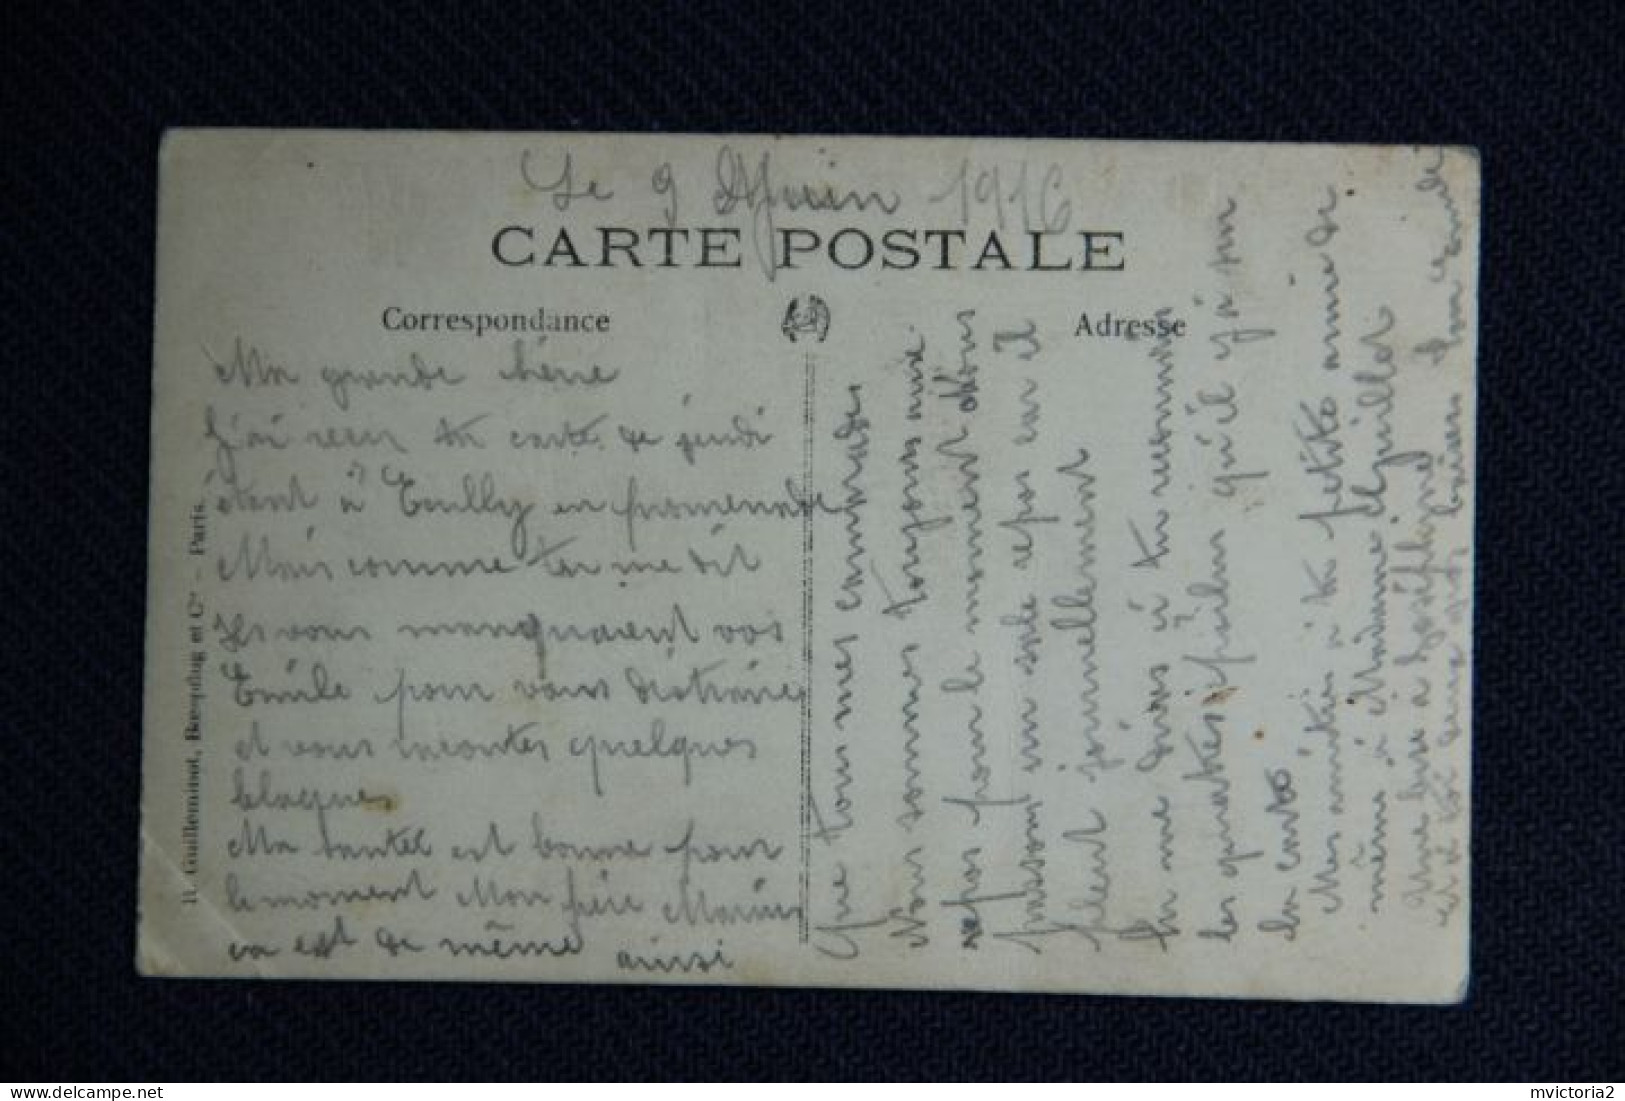 Le 9 Juin 1916
CARTE POSTALE
Correspondance
Adresse
Ma grande
J'ai recu ta carte de jeudi
étant à Toully en promenade
Mais comme tu me dit
Ils vous manquaient vos
Emile pour vous distraire
et vous racontes quelques
blagues
Ma santée est bonne pour
le moment Mon frère Marius
va est de même ainsi
Que tous mes camarades
Nous sommes toujours au
repos pour le moment Nous
passons un sale repos car il
pleut journellement
Tu me diras si tu reconnais
les quatres poilu qu'il y a sur
la carte
Mes amitiés à ta petite amie de
même à Madame Aguillon
Une bise a Joséphine
et à toi
B. Guilleminot, Bœspflug et Cie - Paris.
mvictoria2